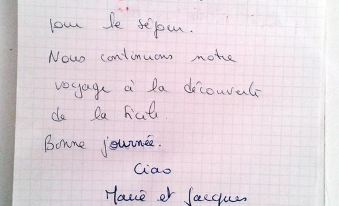 pour le séjour.
Nous continuons notre
voyage à la découverte
de la Sicile.
Bonne journée.
Ciao
Marie et Jacques